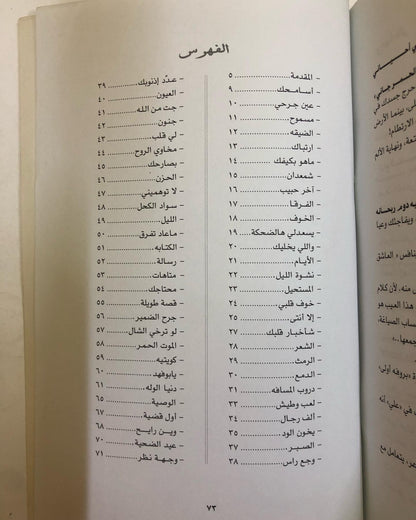 الفهرس
- المقدمة ٥
- اسامحك ٩
- عين جرحي ١٠
- مسموح ١١
- الضيقه ١٢
- ارتباك ١٣
- ماهو بكيفك ١٤
- شمعدان ١٥
- آخر حبيب ١٦
- الفرقا ١٧
- الخوف ١٨
- يسعدلي هالضحكة ١٩
- واللي يخليك ٢٠
- الأيام ٢١
- نشوة الليل ٢٢
- المستحيل ٢٣
- خوف قلبي ٢٤
- إلا أنتى ٢٥
- شاخبار قلبك ٢٧
- الشعر ٢٨
- الرمث ٢٩
- الدمع ٣٠
- دروب المسافه ٣١
- لعب وطيش ٣٣
- ألف رجال ٣٤
- يخون الود ٣٥
- الصبر ٣٧
- وجع راس ٣٨
- عدّد إذنوبك ٣٩
- العيون ٤٠
- جت من الله ٤١
- جنون ٤٢
- لي قلب ٤٣
- مخاوي الروح ٤٤
- بصارحك ٤٥
- الحزن ٤٦
- لا توهميني ٤٧
- سواد الكحل ٤٨
- الليل ٤٩
- ماعاد تفرق ٥٠
- الكتابه ٥١
- رسالة ٥٢
- متاهات ٥٣
- محتاجك ٥٤
- قصة طويلة ٥٥
- جرح الضمير ٥٦
- لو ترخي الشال ٥٧
- الموت الحمر ٥٨
- كويتيه ٥٩
- يابوفهد ٦٠
- دنيا الوله ٦١
- الوصية ٦٥
- أول قضية ٦٧
- وين رايح ٦٨
- عيد الضحية ٧٠
- وجهة نظر ٧١
٧٣